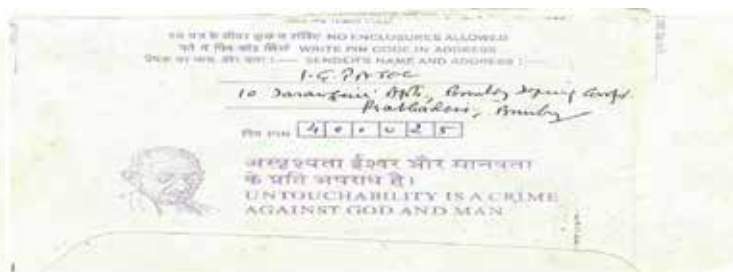 इस पत्र के भीतर कुछ न रखिये NO ENCLOSURES ALLOWED
पते में पिन कोड लिखें WRITE PIN CODE IN ADDRESS
SENDER'S NAME AND ADDRESS :—
10 Apts, Bombay Dyeing Compd.
Prabhadevi, Bombay
पिन PIN 400025
अस्पृश्यता ईश्वर और मानवता
के प्रति अपराध है।
UNTOUCHABILITY IS A CRIME
AGAINST GOD AND MAN